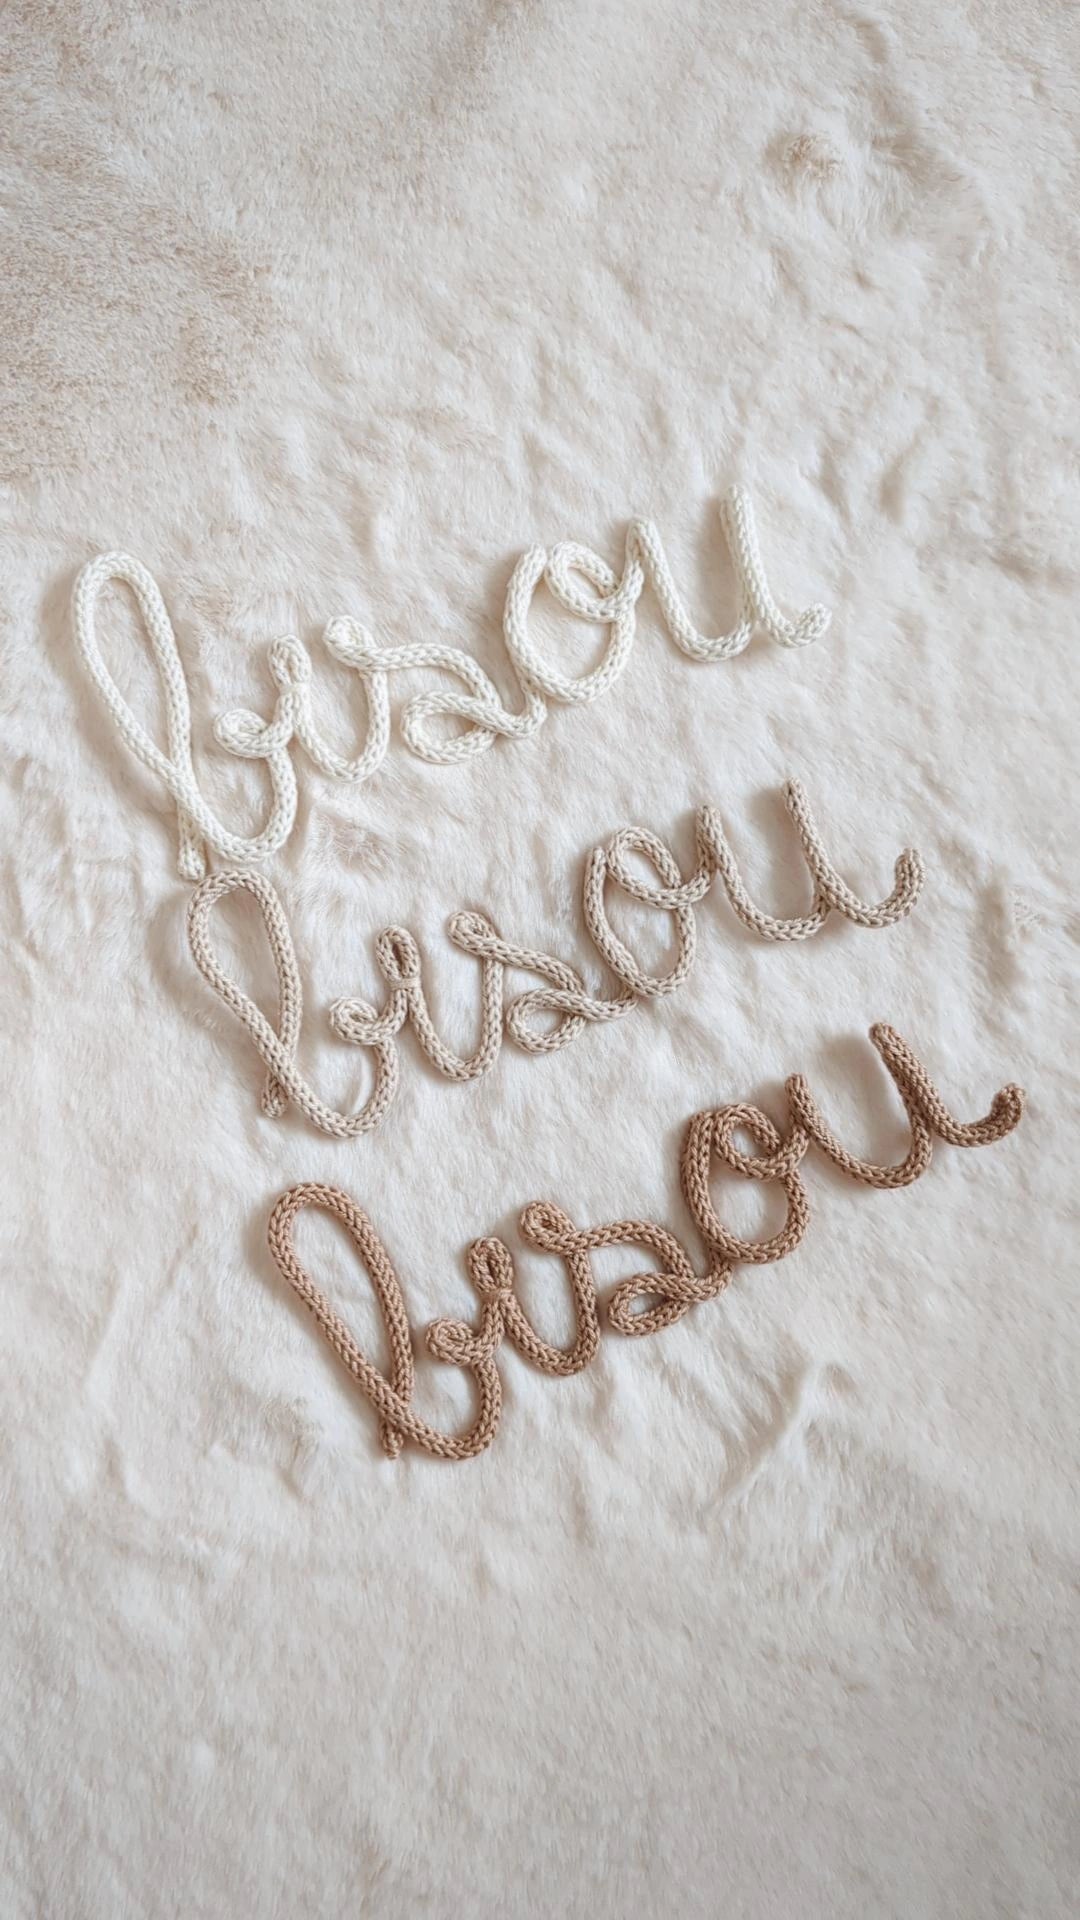 bisou
bisou
bisou